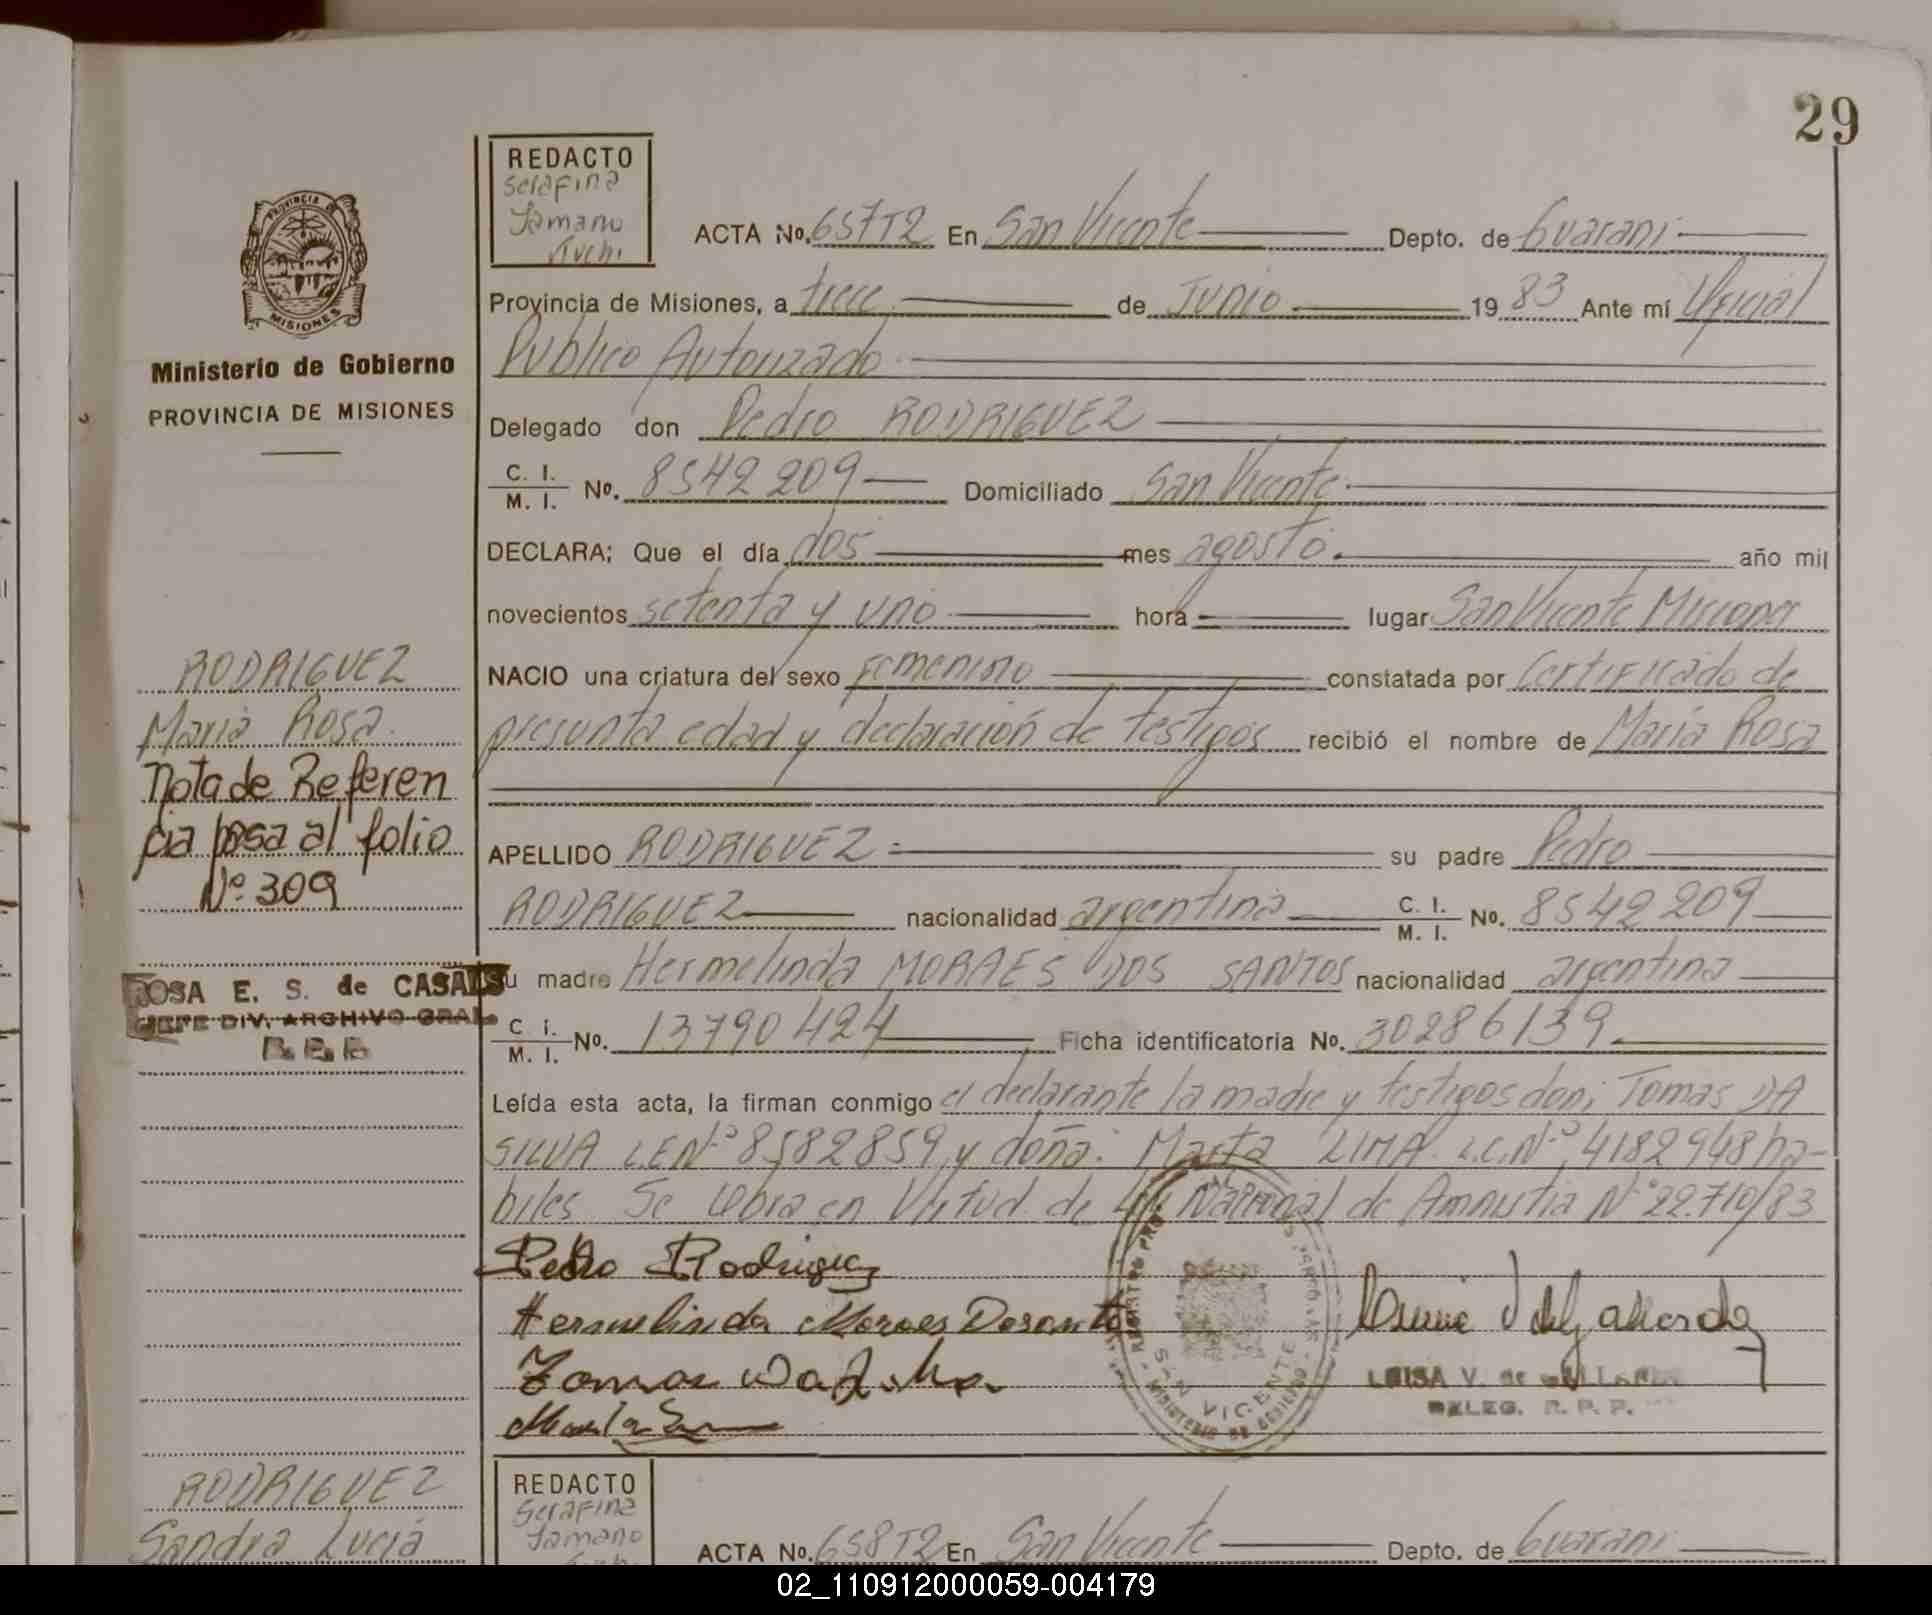 29
REDACTO
Serafina
Tamano
ACTA No. 657T2 En San Vicente Depto. de Guarani
Provincia de Misiones, a trece de Junio 1983 Ante mí Oficial
Publico Autorizado
Delegado don Pedro RODRIGUEZ
C. I.
M. I. No. 8542209 Domiciliado San Vicente
DECLARA; Que el día dos mes agosto. año mil
novecientos setenta y uno hora lugar San Vicente Misiones
NACIO una criatura del sexo Femenino constatada por Certificado de
presunta edad y declaración de testigos recibió el nombre de María Rosa
APELLIDO RODRIGUEZ su padre Pedro
RODRIGUEZ nacionalidad argentina C. I.
M. I. No. 8542209
su madre Hermelinda MORAES DOS SANTOS nacionalidad argentina
C. i.
M. I. No. 13790424 Ficha identificatoria No. 30286139
Leída esta acta, la firman conmigo el declarante la madre y testigos don; Tomas DA
SILVA L.E Nº 8582859 y doña: Marta LIMA L.C. Nº 4182948 ha-
biles. Se labra en Virtud de Ley Nacional de Amnistia Nº 22.710/83
Pedro Rodriguez
Hermelinda Moraes Dosanto
Tomas Da Silva
Marta
SAN VICENTE
LUISA V. de
DELEG. R. P. P.
PROVINCIA DE
MISIONES
Ministerio de Gobierno
PROVINCIA DE MISIONES
RODRIGUEZ
Maria Rosa.
Nota de Referen
cia pasa al folio
Nº 309
ROSA E. S. de CASALS
JEFE DIV. ARCHIVO GRAL
REDACTO
Serafina
Tamano
ACTA No. 658T2 En San Vicente Depto. de Guarani
RODRIGUEZ
Sandra Lucia
02_110912000059-004179